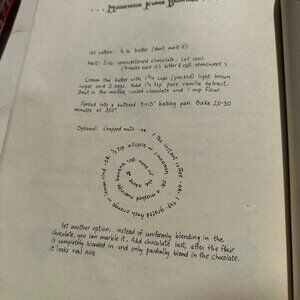 MOOSEWOOD FUDGE BROWNIES
let soften: ½ lb butter (don't melt it)
Melt: 5 oz. unsweetened chocolate. Let cool.
(make sure it's bitter & not semisweet)
Cream the butter with 1¾ cups (packed) light brown
sugar and 5 eggs. Add 1½ tsp. pure vanilla extract.
Beat in the melted, cooled chocolate and 1 cup flour.
Spread into a buttered 9x13" baking pan. Bake 20-30
minutes at 350°.
Optional: chopped nuts -or- instant coffee -or- 1 tsp. grated fresh orange or lemon rind -or- ½ tsp. allspice or cinnamon, -or- a mashed overripe banana, -or- none of the above
Yet another option: instead of uniformly blending in the
chocolate, you can marble it. Add chocolate last, after the flour
is completely blended in and only partially blend in the chocolate.
It looks real nice